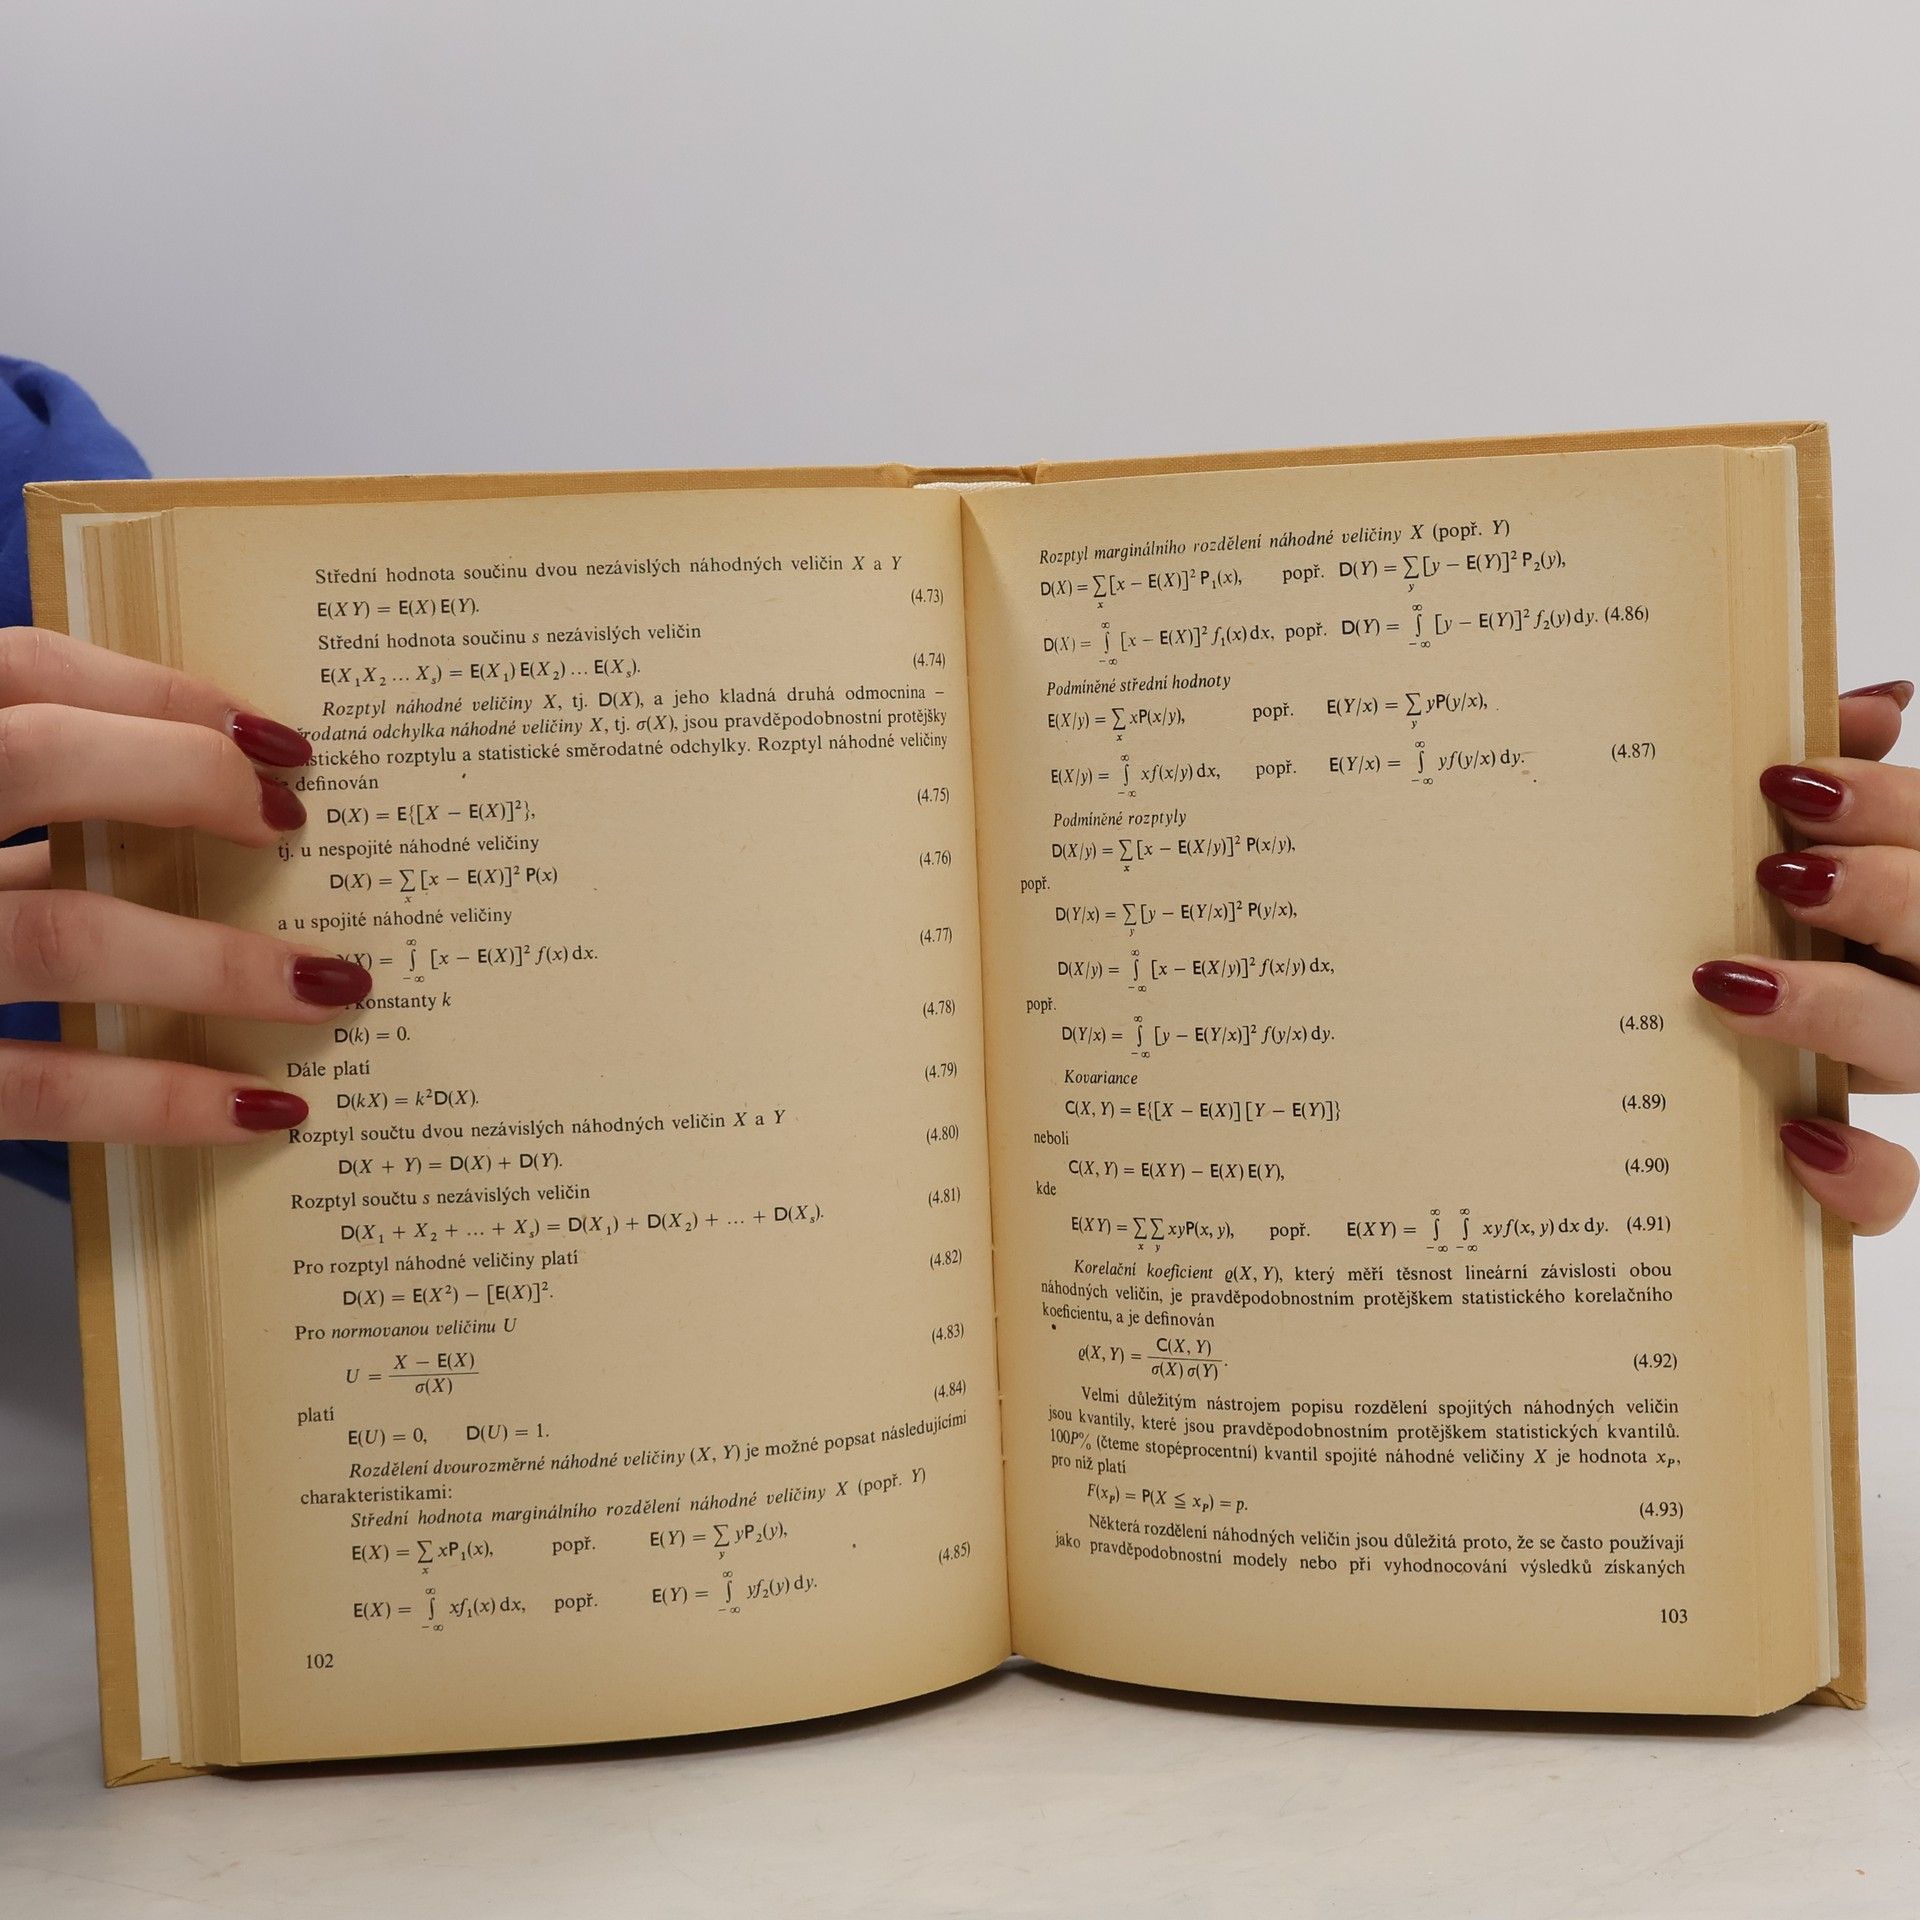 Střední hodnota součinu dvou nezávislých náhodných veličin X a Y
E(XY) = E(X) E(Y). (4.73)
Střední hodnota součinu s nezávislých veličin
E(X₁X₂ ... Xₛ) = E(X₁) E(X₂) ... E(Xₛ). (4.74)
Rozptyl náhodné veličiny X, tj. D(X), a jeho kladná druhá odmocnina –
odchylka náhodné veličiny X, tj. σ(X), jsou pravděpodobnostní protějšky
rozptylu a statistické směrodatné odchylky. Rozptyl náhodné veličiny
definován
D(X) = E{[X − E(X)]²}, (4.75)
tj. u nespojité náhodné veličiny
D(X) = ∑ₓ [x − E(X)]² P(x) (4.76)
a u spojité náhodné veličiny
(X) = ∫_{−∞}^{∞} [x − E(X)]² f(x) dx. (4.77)
konstanty k
D(k) = 0. (4.78)
Dále platí
D(kX) = k²D(X). (4.79)
Rozptyl součtu dvou nezávislých náhodných veličin X a Y
D(X + Y) = D(X) + D(Y). (4.80)
Rozptyl součtu s nezávislých veličin
D(X₁ + X₂ + ... + Xₛ) = D(X₁) + D(X₂) + ... + D(Xₛ). (4.81)
Pro rozptyl náhodné veličiny platí
D(X) = E(X²) − [E(X)]². (4.82)
Pro normovanou veličinu U
U = (X − E(X)) / σ(X) (4.83)
platí
E(U) = 0, D(U) = 1. (4.84)
Rozdělení dvourozměrné náhodné veličiny (X, Y) je možné popsat následujícími
charakteristikami:
Střední hodnota marginálního rozdělení náhodné veličiny X (popř. Y)
E(X) = ∑ₓ xP₁(x), popř. E(Y) = ∑_y yP₂(y),
E(X) = ∫_{−∞}^{∞} xf₁(x) dx, popř. E(Y) = ∫_{−∞}^{∞} yf₂(y) dy. (4.85)
102
Rozptyl marginálního rozdělení náhodné veličiny X (popř. Y)
D(X) = ∑ₓ [x − E(X)]² P₁(x), popř. D(Y) = ∑_y [y − E(Y)]² P₂(y),
D(X) = ∫_{−∞}^{∞} [x − E(X)]² f₁(x) dx, popř. D(Y) = ∫_{−∞}^{∞} [y − E(Y)]² f₂(y) dy. (4.86)
Podmíněné střední hodnoty
E(X/y) = ∑ₓ xP(x/y), popř. E(Y/x) = ∑_y yP(y/x),
E(X/y) = ∫_{−∞}^{∞} xf(x/y) dx, popř. E(Y/x) = ∫_{−∞}^{∞} yf(y/x) dy. (4.87)
Podmíněné rozptyly
D(X/y) = ∑ₓ [x − E(X/y)]² P(x/y),
popř.
D(Y/x) = ∑_y [y − E(Y/x)]² P(y/x),
D(X/y) = ∫_{−∞}^{∞} [x − E(X/y)]² f(x/y) dx,
popř.
D(Y/x) = ∫_{−∞}^{∞} [y − E(Y/x)]² f(y/x) dy. (4.88)
Kovariance
C(X, Y) = E{[X − E(X)] [Y − E(Y)]} (4.89)
neboli
C(X, Y) = E(XY) − E(X) E(Y), (4.90)
kde
E(XY) = ∑ₓ ∑_y xyP(x, y), popř. E(XY) = ∫_{−∞}^{∞} ∫_{−∞}^{∞} xyf(x, y) dx dy. (4.91)
Korelační koeficient ϱ(X, Y), který měří těsnost lineární závislosti obou
náhodných veličin, je pravděpodobnostním protějškem statistického korelačního
koeficientu, a je definován
ϱ(X, Y) = C(X, Y) / (σ(X) σ(Y)). (4.92)
Velmi důležitým nástrojem popisu rozdělení spojitých náhodných veličin
jsou kvantily, které jsou pravděpodobnostním protějškem statistických kvantilů.
100P% (čteme stopéprocentní) kvantil spojité náhodné veličiny X je hodnota x_P,
pro niž platí
F(x_P) = P(X ≦ x_P) = p. (4.93)
Některá rozdělení náhodných veličin jsou důležitá proto, že se často používají
jako pravděpodobnostní modely nebo při vyhodnocování výsledků získaných
103